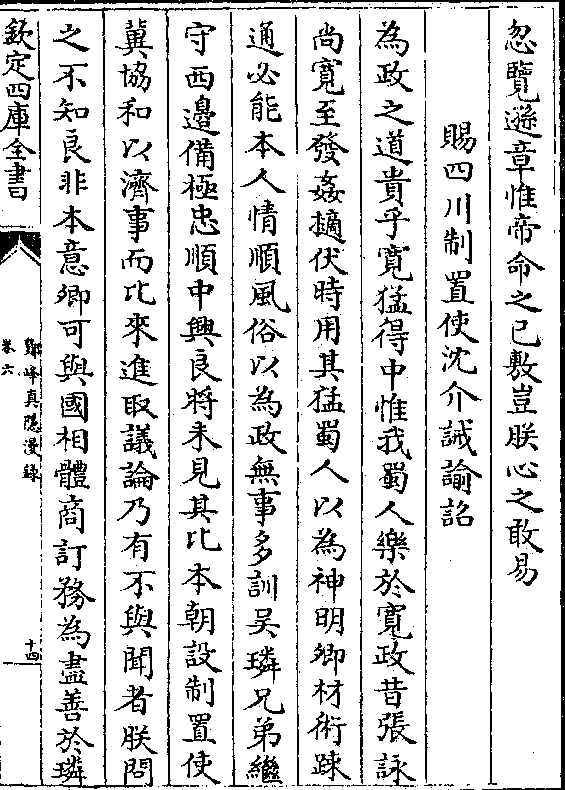 忽覽遜章惟帝命之已敷豈朕心之敢易
賜四川制置使沈介誡諭詔
為政之道貴乎寛猛得中惟我蜀人樂於寛政昔張詠
尚寛至發姦擿伏時用其猛蜀人以為神明卿材術踈
通必能本人情順風俗以為政無事多訓吴璘兄弟繼
守西邉備極忠順中興良將未見其比本朝設制置使
冀協和以濟事而比來進取議論乃有不與聞者朕問
之不知良非本意卿可與國相體商訂務為盡善於璘
欽定四庫全書
鄮峰真隠漫録
卷六
十四